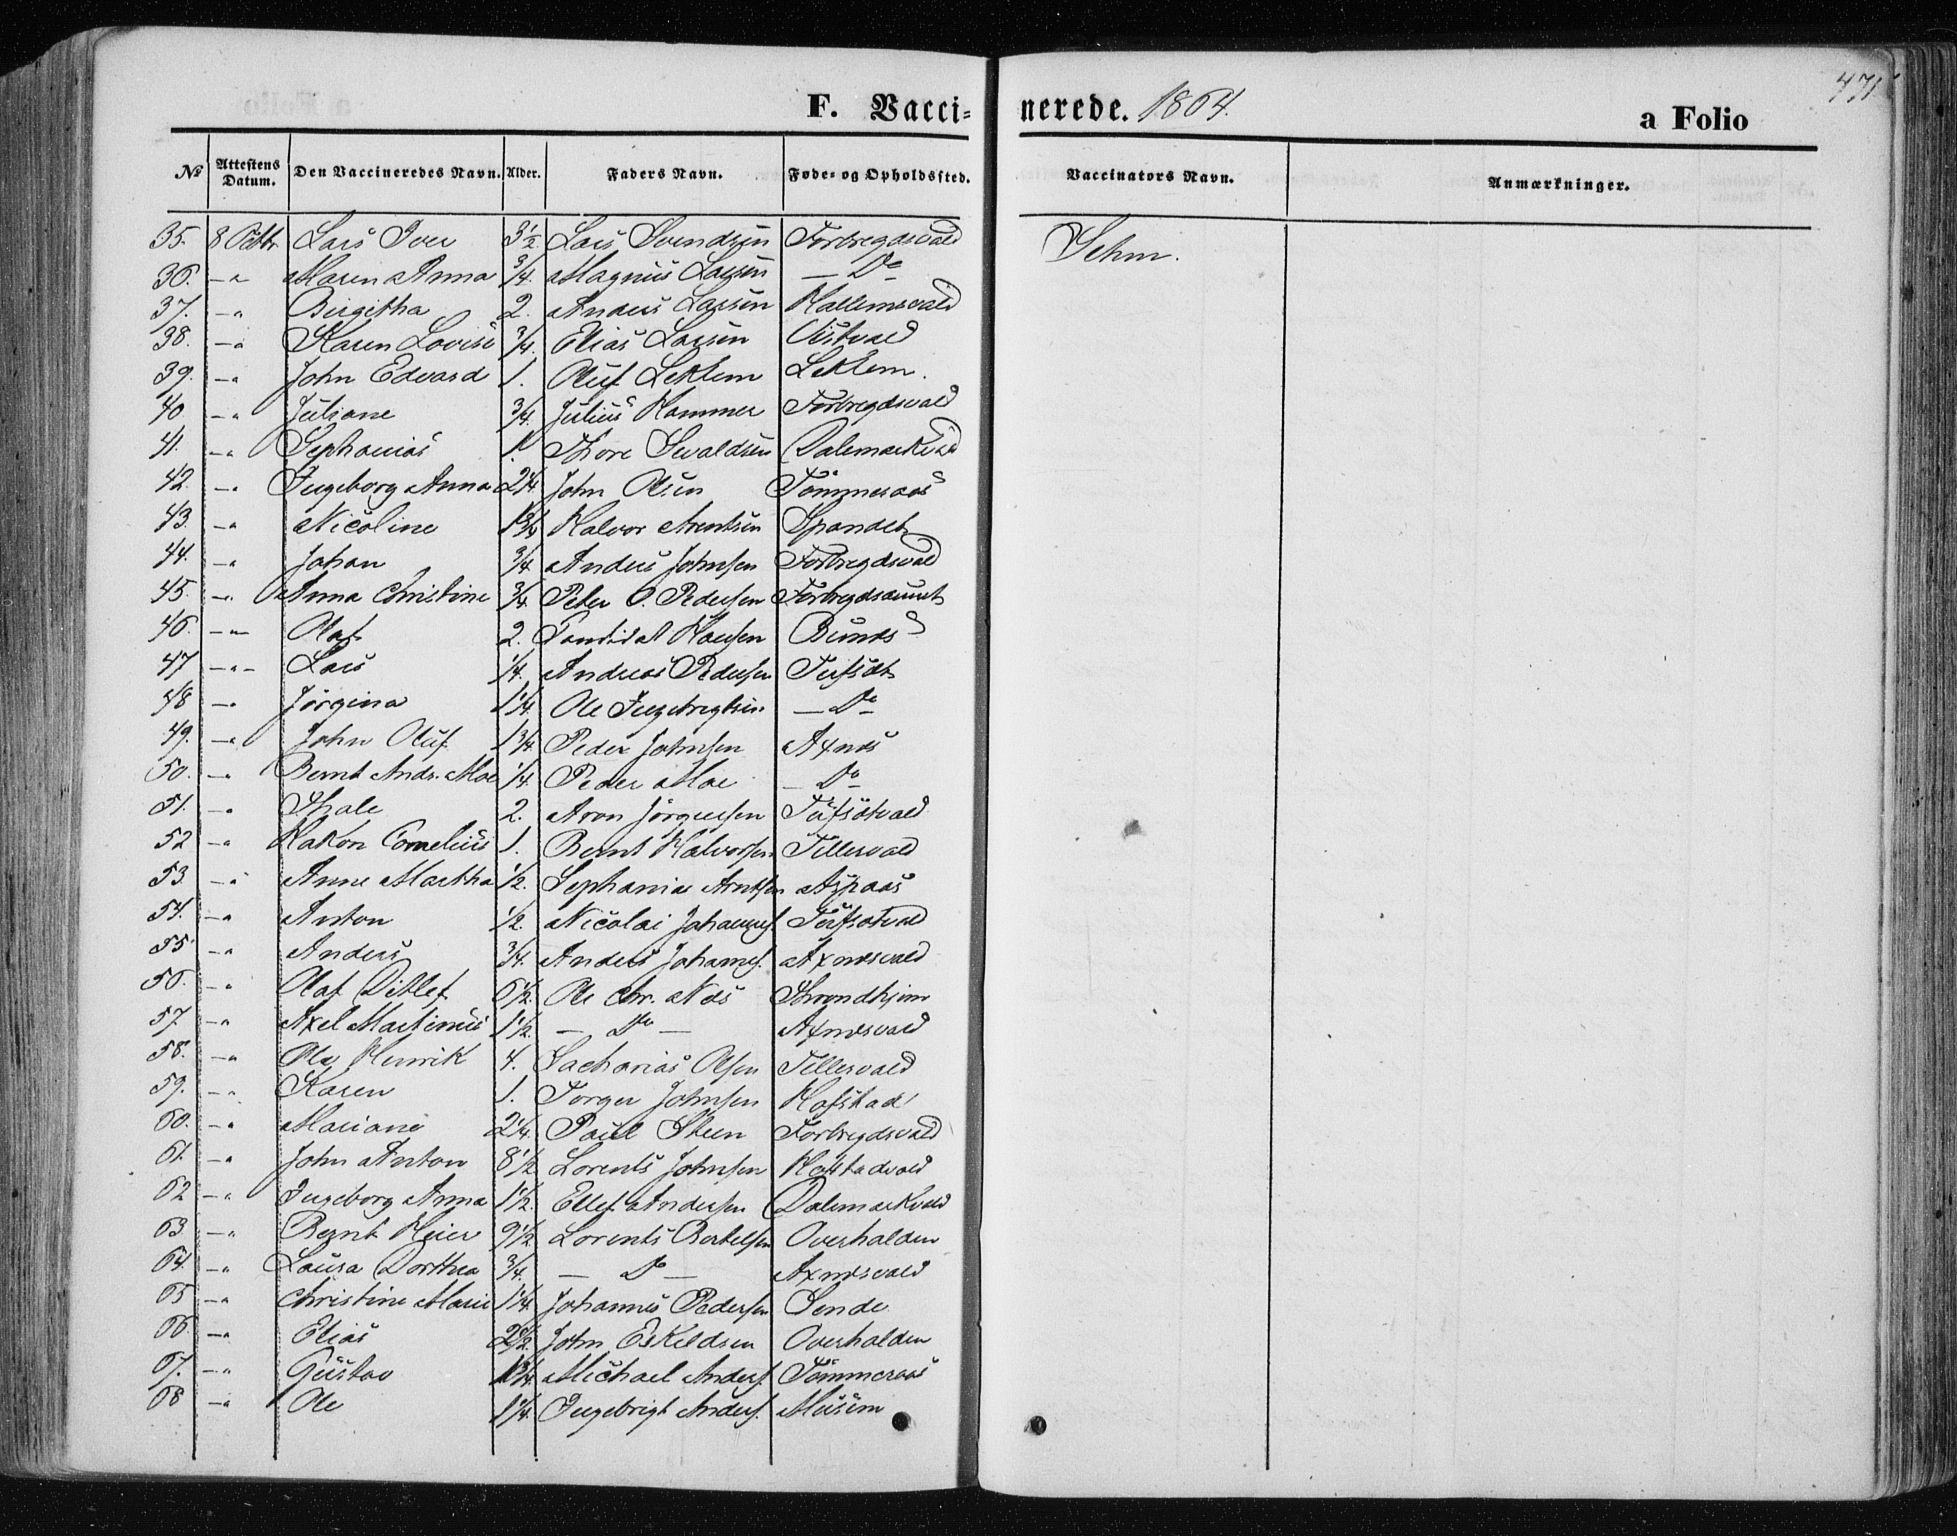 471
F. Vacci- nerede. 1864. a Folio
No Attestens Datum. Den Vaccineredes Navn. Alder. Faders Navn. Føde- og Opholdssted. Vaccinators Navn. Anmærkninger.
35. 8 Octbr. Lars Iver 3 1/2 Lars Svendsen Forbregdsvald Sehm.
36. -"- Maren Anna 3/4. Magnus Larsen - Do -
37. -"- Birgitha 2. Anders Larsen Hallemsvald
38. -"- Karen Lovise 3/4. Elias Larsen
39. -"- John Edvard 1. Oluf Leklem Leklem.
40. -"- Juliane 3/4. Julius Hammer Forbregdsvald
41. -"- Sephanias 1. Thore Sivaldsen Dalemarkvald
42. -"- Ingeborg Anna 2 1/4 John Olsen Tömmeraas
43. -"- Nicoline 1 3/4 Halvor Arentsen Spandet
44. -"- Johan 3/4 Anders Johnsen Forbregdsvald
45. -"- Anna Christine 3/4. Peter O. Pedersen
46. -"- Olaf 2. Candidat Hansen Bunæs
47 -"- Lars 1/4. Andreas Pedersen
48 -"- Jörgina 1 1/4. Ole Ingebregtsen - Do -
49. -"- John Oluf 1 3/4. Peder Johnsen Axnæs
50. -"- Bernt Andr. Moe 1/4. Peder Moe - Do -
51. -"- Thale 2. Aron Jörgensen
52 -"- Hakon Cornelius 1. Bernt Halvorsen Tillervald
53. -"- Anne Martha 1/2. Sephanias Arntsen Aspaas
54. -"- Anton 1/2. Nicolai Johannes.
55 -"- Anders 3/4. Anders Johannes. Axnæsvald
56. -"- Olaf Ditlef 6 1/2. Ole Chr. Næs Throndhjem
57. -"- Axel Martinus 1 1/2. - Do - Axnæsvald
58. -"- Ole Henrik 4. Sacharias Olsen Tillervald
59. -"- Karen 1. Torger Johnsen Hofstad
60. -"- Mariane 2 1/4. Paul Steen Forbregdsvald
61. -"- John Anton 8 1/2 Lorents Johnsen Hofstadvald
62 -"- Ingeborg Anna 1 1/2. Ellef Andersen Dalemarkvald
63 -"- Bernt Meier 9 1/2 Lorents Bertelsen Overhalden
64. -"- Laura Dorthea 3/4. - Do - Axnæsvald
65 -"- Christine Marie 1 1/4. Johannes Pedersen Sende
66 -"- Elias 2 1/2. John Eskildsen Overhalden
67. -"- Gustav 1 3/4. Michael Anders. Tömmeraas
68 -"- Ole 1 1/4. Ingebrigt Anders. Musem